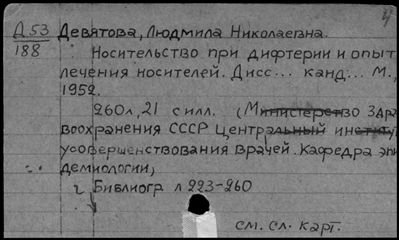 Д53 Девятова, Людмила Николаевна.
188 Носительство при дифтерии и опыт
лечения носителей. Дисс... канд... М.,
1952.
260л, 21 с илл. (Министерство Здра
воохранения СССР Центральный институ
усовершенствования врачей. Кафедра эпи
демиологии,
Библиогр л 223-260
см. сл. карт.